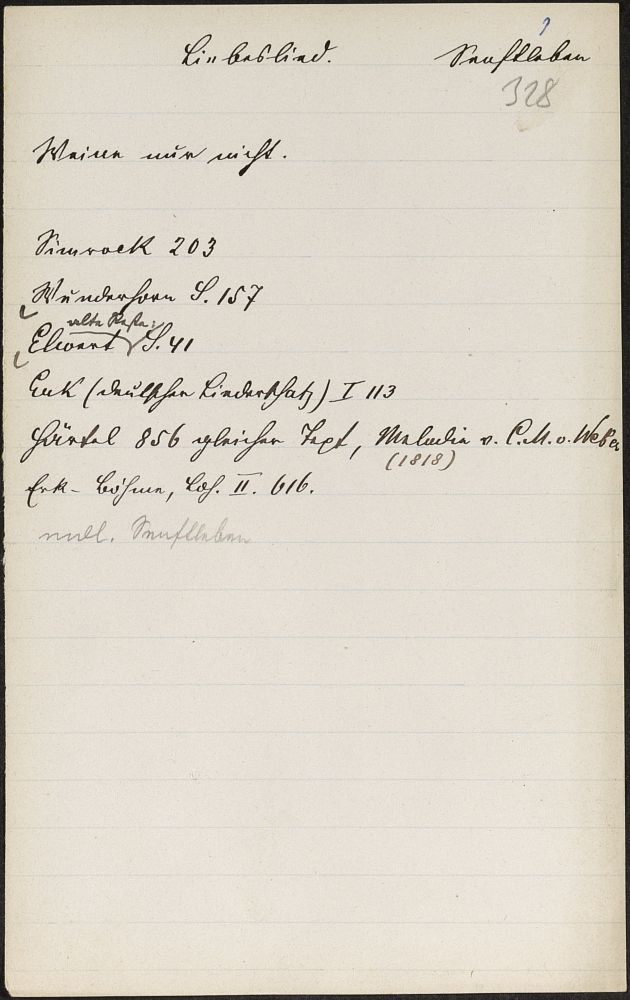 1
Liebeslied. Senftleben
328
Weine nur nicht.
Simrock 203
Wunderhorn S. 157
alte Reste:
Elwert S. 41
Erk (deutscher Liederschatz) I 113
Härtel 856 gleicher Text, Melodie v. C. M. v. Weber
(1818)
Erk-Böhme, Ldh. II. 616.
mdl. Senftleben